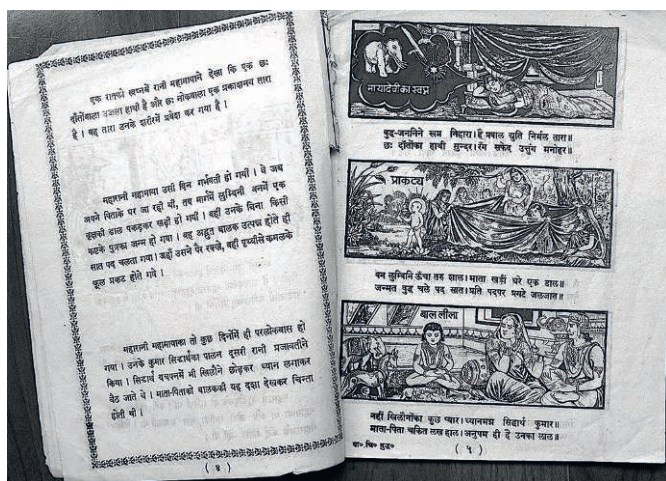 एक रातको स्वप्नमें रानी महामायाने देखा कि एक छः
दाँतोंवाला उजला हाथी है और छः नोकवाला एक प्रकाशमय तारा
है। वह तारा उनके शरीरमें प्रवेश कर गया है।
महारानी महामाया उसी दिन गर्भवती हो गयीं। वे जब
अपने पिताके घर जा रही थीं, तब मार्गमें लुम्बिनी वनमें एक
वृक्षकी डाल पकड़कर खड़ी हो गयीं। वहीं उनके बिना किसी
कष्टके पुत्रका जन्म हो गया। वह अद्भुत बालक उत्पन्न होते ही
सात पद चलता गया। जहाँ उसने पैर रक्खे, वहीं पृथ्वीसे कमलके
फूल प्रकट होते गये।
महारानी महामायाका तो कुछ दिनोंमें ही परलोकवास हो
गया। उनके कुमार सिद्धार्थका पालन दूसरी रानी प्रजावतीने
किया। सिद्धार्थ बचपनमें भी खिलौने छोड़कर ध्यान लगाकर
बैठ जाते थे। माता-पिताको बालककी यह दशा देखकर चिन्ता
होती थी।
( ४ )
मायादेवीका स्वप्न
बुद्ध-जननिने स्वप्न निहारा। है षषाल द्युति निर्मल तारा॥
छः दाँतोंका हाथी सुन्दर। रँग सफेद उत्तुंग मनोहर॥
प्राकट्य
वन लुम्बिनि ऊँचा तरु शाल। माता खड़ीं धरे एक डाल॥
जन्मत बुद्ध चले पद सात। प्रति पदपर प्रगटे जलजात॥
बाल लीला
नहीं खिलौनोंका कुछ प्यार। ध्यानमग्न सिद्धार्थ कुमार॥
माता-पिता चकित लख हाल। अनुपम ही है उनका लाल॥
बा॰ चि॰ बुद्ध॰
( ५ )